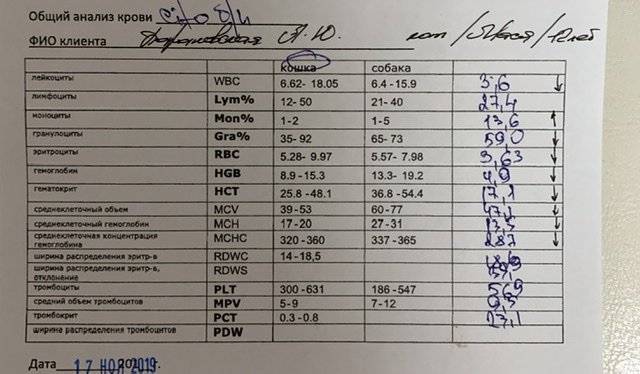 Общий анализ крови
ФИО клиента А. Ю. кот / / 12 лет
кошка собака
лейкоциты WBC 6.62- 18.05 6.4 - 15.9 3,6 ↓
лимфоциты Lym% 12- 50 21- 40 27,4
моноциты Mon% 1-2 1-5 13,6 ↑
гранулоциты Gra% 35- 92 65- 73 59,0 ↓
эритроциты RBC 5.28- 9.97 5.57- 7.98 3,63 ↓
гемоглобин HGB 8.9 - 15.3 13.3- 19.2 4,9 ↓
гематокрит HCT 25.8 -48.1 36.8 - 54.4 17,1 ↓
среднеклеточный объем MCV 39-53 60-77 47,1
среднеклеточный гемоглобин MCH 17-20 27-31 13,5 ↓
среднеклеточная концентрация гемоглобина MCHC 320 -360 337 -365 287 ↓
ширина распределения эритр-в RDWC 14 -18,5
ширина распределения эритр-в, отклонение RDWS
тромбоциты PLT 300 -631 186 -547 569
средний объем тромбоцитов MPV 5-9 7-12
тромбокрит PCT 0.3 - 0.8 23,1
ширина распределения тромбоцитов PDW
Дата 17 НОЯ 2019 г.